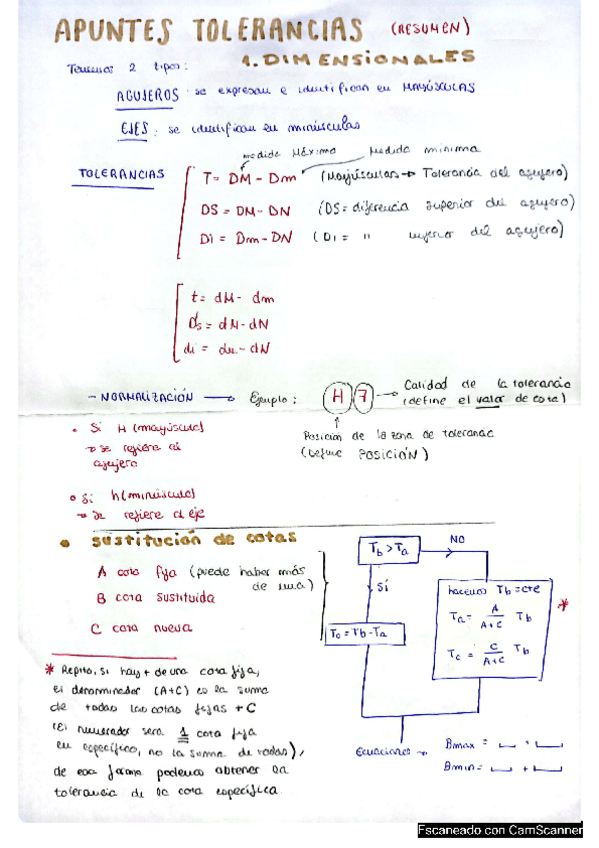 APUNTES TOLERANCIAS (RESUMEN)
1. DIMENSIONALES
Tenemos 2 tipos:
AGUJEROS: se expresan e identifican en MAYÚSCULAS
EJES: se identifican en minúsculas
medida Máxima medida mínima
TOLERANCIAS T = DM - Dm (Mayúsculas → Tolerancia del agujero)
DS = DM - DN (DS = diferencia superior del agujero)
Di = Dm - DN (Di = " inferior del agujero)
t = dM - dm
ds = dM - dN
di = dm - dN
- NORMALIZACIÓN → Ejemplo: H 7 Calidad de la tolerancia
(define el valor de cota)
Posición de la zona de tolerancia
(Define POSICIÓN)
• Si H (mayúscula)
→ se refiere al
agujero
• Si h (minúscula)
→ se refiere al eje
• sustitución de cotas
A cota fija (puede haber más
de una)
B cota sustituida
C cota nueva
Tb > Ta NO
SÍ
Tc = Tb - Ta
hacemos Tb = cte *
Ta = A/A+C Tb
Tc = C/A+C Tb
Ecuaciones → Bmax =
Bmin = +
* Repito, si hay + de una cota fija,
el denominador (A+C) es la suma
de todas las cotas fijas + C
(El numerador sera 1 cota fija
en específico, no la suma de varias),
de esa forma podemos obtener la
tolerancia de la cota específica.
Escaneado con CamScanner